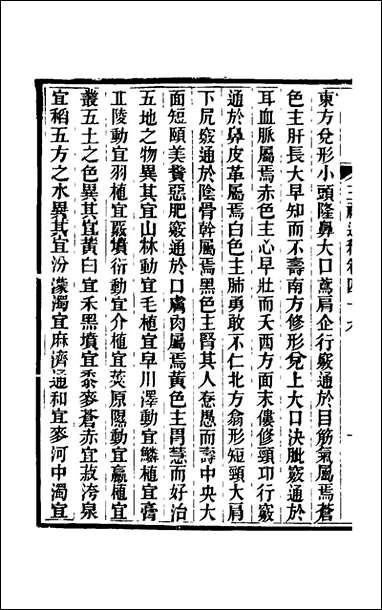 東方兌形小頭隆鼻大口鳶肩企行竅通於目筋氣屬焉蒼
色主肝長大早知而不壽南方修形兌上大口決眦竅通於
耳血脈屬焉赤色主心早壯而夭西方面末僂修頸卬行竅
通於鼻皮革屬焉白色主肺勇敢不仁北方翕形短頸大肩
下尻竅通於陰骨幹屬焉黑色主腎其人惷愚而壽中央大
面短頤美鬚惡肥竅通於口膚肉屬焉黃色主胃慧而好治
五地之物異其宜山林動宜毛植宜皁川澤動宜鱗植宜膏
丠陵動宜羽植宜覈墳衍動宜介植宜莢原隰動宜臝植宜
叢五土之色異其宜黃白宜禾黑墳宜黍麥蒼赤宜菽洿泉
宜稻五方之水異其宜汾濛濁宜麻濟通和宜麥河中濁宜